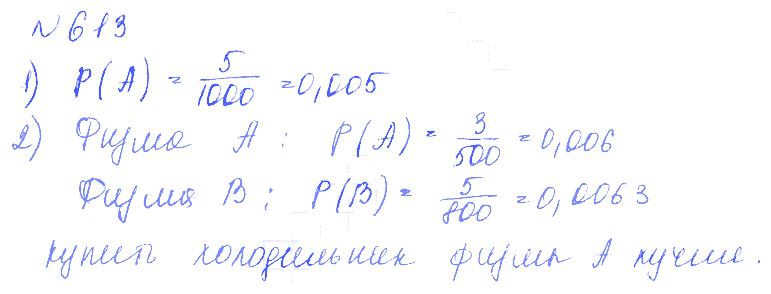 № 613
1) P(A) = 5/1000 = 0,005
2) Фирма А: P(A) = 3/500 = 0,006
Фирма В: P(B) = 5/800 = 0,0063
Купить холодильник фирмы А лучше.